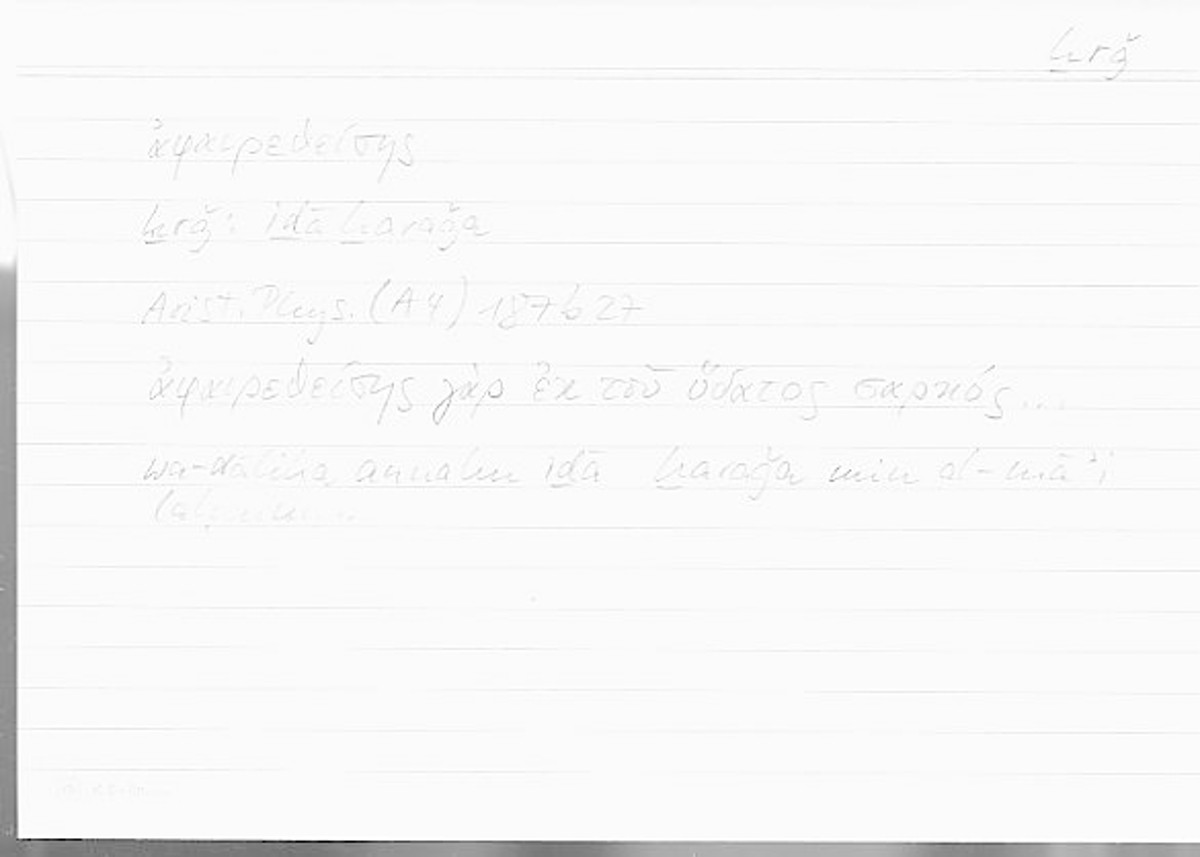 ḫrǧ
ἀφαιρεθείσης
ḫrǧ: iḏā ḫaraǧa
Arist. Phys. (A 4) 187 b 27
ἀφαιρεθείσης γὰρ ἐκ τοῦ ὕδατος σαρκός...
wa-ḏālika annahu iḏā ḫaraǧa min al-māʾi
laḥmun...